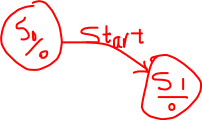 S0/0
Start
S1
0